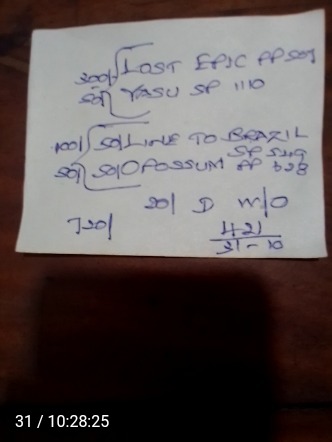 300/ LOST EPIC PP 507
50/ YASU SP 1110
100/ 50/ LINE TO BRAZIL
SP 549
50/ 50/ OPOSSUM PP 628
20/ D W/O
720/ 421
31-10
31 / 10:28:25